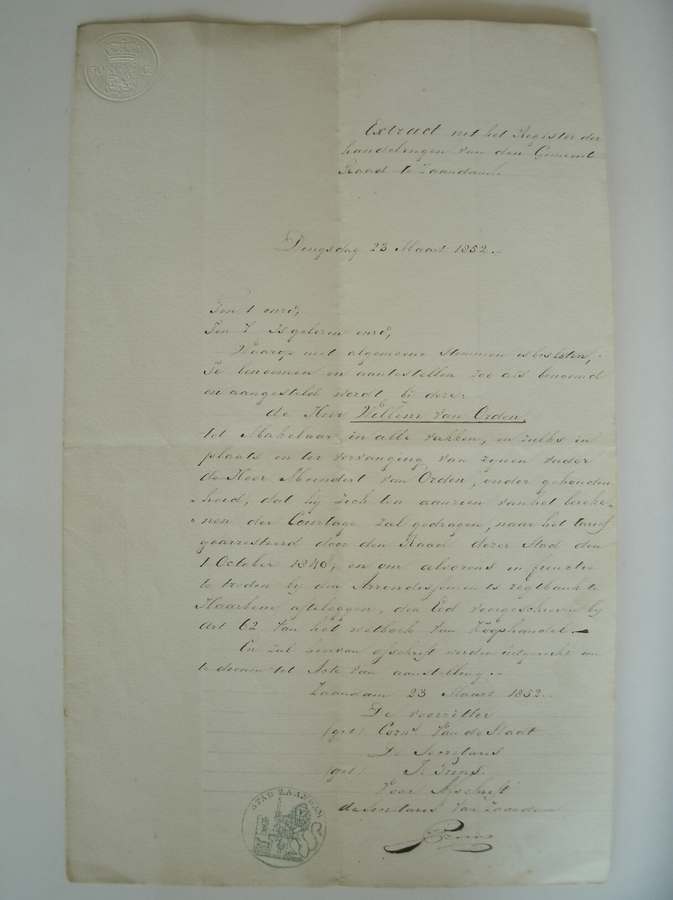 Extract uit het Register der
handelingen van den Gemeente
Raad te Zaandam
Dingsdag 23 Maart 1852.
Is gelezen enz;
Waarop met algemeene Stemmen is besloten,
Te benoemen en aantestellen zoo als benoemd
en aangesteld wordt bij dezen
de Heer Willem van Orden,
tot Makelaar in alle vakken, en zulks in
plaats en ter vervanging van zijnen vader
de Heer Meindert van Orden, onder gehouden-
heid, dat hij zich ten aanzien van het bereke-
nen der Courtage zal gedragen, naar het tarief
gearresteerd door den Raad dezer Stad den
1 October 1846, en om alvorens in functie
te treden bij de Arrondissements regtbank te
Haarlem afteleggen, den Eed voorgeschreven bij
Art 62 van het wetboek van Koophandel.
En zal hiervan afschrift worden uitgereikt om
te dienen tot Acte van aanstelling.
Zaandam 23 Maart 1852.
De voorzitter
(get) Corns. van de Stadt
De Secretaris
(get)
Voor Afschrift
de Secretaris van Zaandam
STAD ZAANDAM